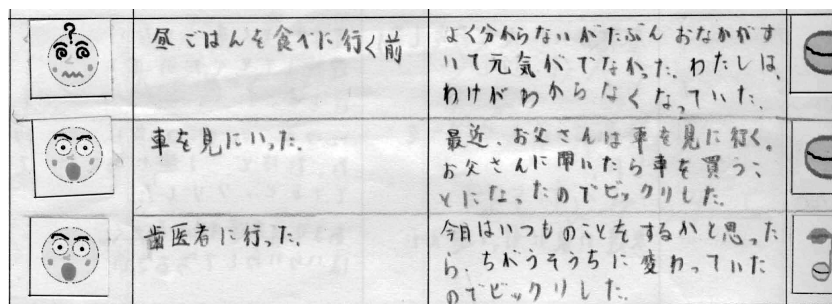 ?
昼ごはんを食べに行く前
よく分からないがたぶんおなかがす
いて元気がでなかった。わたしは、
わけがわからなくなっていた。
車を見にいった。
最近、お父さんは車を見に行く。
お父さんに聞いたら車を買うこ
とになったのでビックリした。
歯医者に行った。
今日はいつものことをするかと思った
ら、ちがうそうちに変わっていた
のでビックリした。